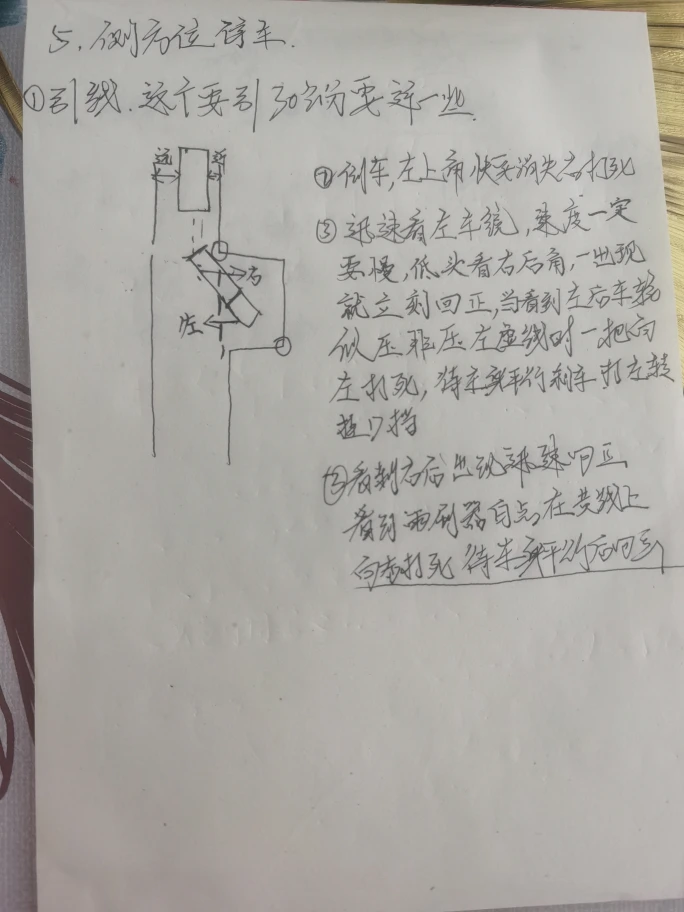 5. 侧方位停车.
①引线.这个要引30公分要近一些.
远 近
右
左
②倒车,左上角快要消失右打死
③迅速看左车镜,速度一定
要慢,低头看右后角,一出现
就立刻回正,当看到左后车轮
似压非压左虚线时一把向
左打死,待车身平行刹车.打左转
挂D挡
看到右后出现迅速回正
看到雨刷器白点,在黄线上
向右打死 待车身平行后回正